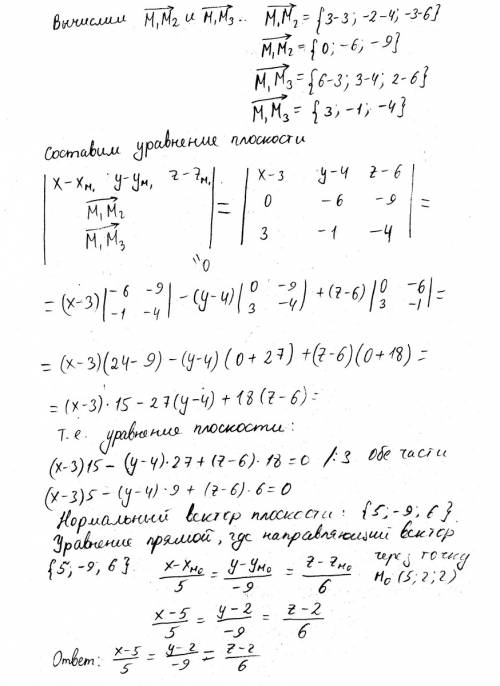 Вычислим M₁M₂ и M₁M₃.. M₁M₂ = {3-3; -2-4; -3-6}
M₁M₂ = {0; -6; -9}
M₁M₃ = {6-3; 3-4; 2-6}
M₁M₃ = {3; -1; -4}
Составим уравнение плоскости
|x-xм₁ y-yм₁ z-zм₁| = |x-3 y-4 z-6| =
|M₁M₂| |0 -6 -9|
|M₁M₃| |3 -1 -4|
"0
= (x-3)|-6 -9; -1 -4| - (y-4)|0 -9; 3 -4| + (z-6)|0 -6; 3 -1| =
= (x-3)(24-9) - (y-4)(0+27) + (z-6)(0+18) =
= (x-3)·15 - 27(y-4) + 18(z-6) =
т.е. уравнение плоскости:
(x-3)15 - (y-4)·27 + (z-6)·18 = 0 /:3 обе части
(x-3)5 - (y-4)·9 + (z-6)·6 = 0
Нормальный вектор плоскости: {5; -9; 6}.
Уравнение прямой, где направляющий вектор
{5; -9; 6}. x-xм₀/5 = y-yм₀/-9 = z-zм₀/6 через точку M₀(5; 2; 2)
x-5/5 = y-2/-9 = z-2/6
Ответ: x-5/5 = y-2/-9 = z-2/6